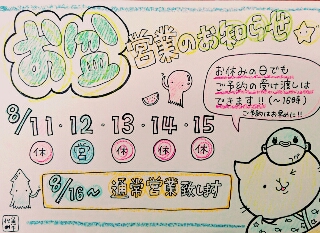 お盆
営業のお知らせ
お休みの日でも
ご予約の受け渡しは
できます!!(~16時)
ご予約はお早めに!!
8/11・12・13・14・15
休 営 休 休 休
8/16~ 通常営業致します